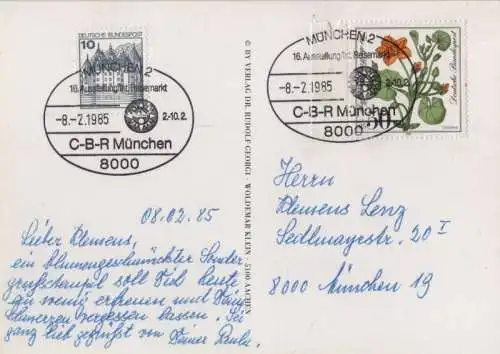 10 DEUTSCHE BUNDESPOST
MÜNCHEN 2
16. Ausstellung f. d. Reisemarkt
-8.-2.1985
2-10.2.
C-B-R München
8000
MÜNCHEN 2
16. Ausstellung f. d. Reisemarkt
-8.-2.1985
2-10.2.
C-B-R München
8000
50
Deutsche Bundespost
© BY VERLAG DR. RUDOLF GEORGI - WOLDEMAR KLEIN - 5100 AACHEN
08.02.85
Lieber Klemens,
ein blumengeschmückter Sonder
soll Dich heute
ein wenig erfreuen und Deine
Schmerzen vergessen lassen. Sei
ganz lieb gegrüßt von Deiner Paula.
Herrn
Klemens Lenz
Sedlmayrstr. 20 I
8000 München 19